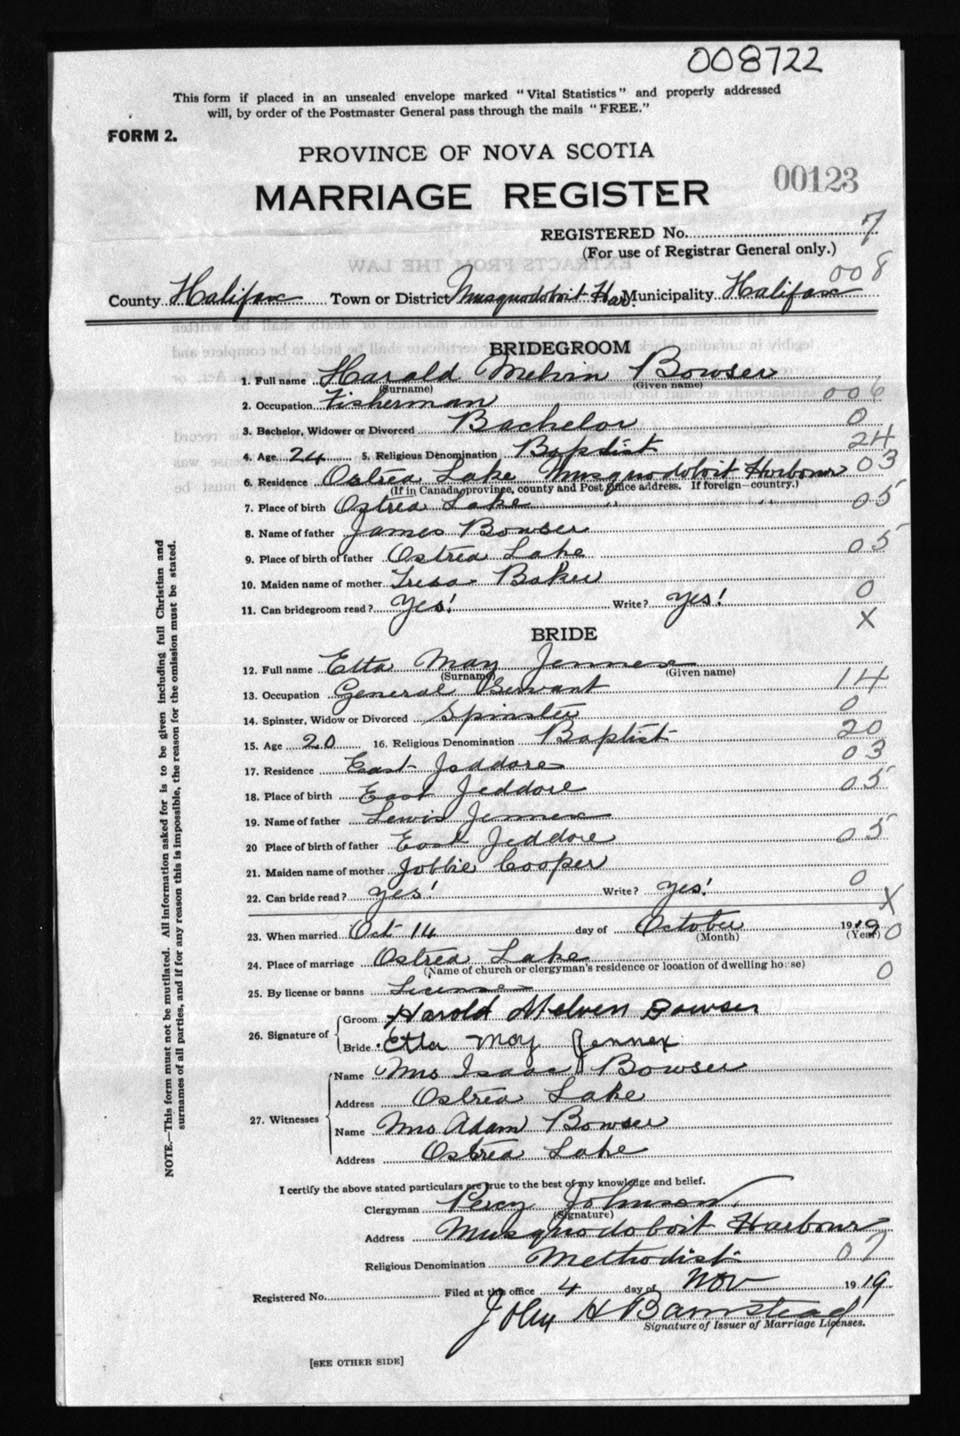 008722
This form if placed in an unsealed envelope marked "Vital Statistics" and properly addressed
will, by order of the Postmaster General pass through the mails "FREE."
FORM 2.
PROVINCE OF NOVA SCOTIA
00123
MARRIAGE REGISTER
REGISTERED No. 7
(For use of Registrar General only.)
008
County Halifax Town or District Musquodoboit Har. Municipality Halifax
BRIDEGROOM
1. Full name Harald Melvin Bowser
(Surname) (Given name)
2. Occupation Fisherman 006
3. Bachelor, Widower or Divorced Bachelor 0
4. Age 24 5. Religious Denomination Baptist 24
6. Residence Ostrea Lake Musquodoboit Harbour 03
(If in Canada province, county and Post Office address. If foreign—country.)
7. Place of birth Ostrea Lake " " 05
8. Name of father James Bowser
9. Place of birth of father Ostrea Lake 05
10. Maiden name of mother Tresa Baker
11. Can bridegroom read? Yes! Write? Yes! 0
X
BRIDE
12. Full name Etta May Jennex
(Surname) (Given name)
13. Occupation General Servant 14
14. Spinster, Widow or Divorced Spinster 0
15. Age 20 16. Religious Denomination Baptist 20
17. Residence East Jeddore 03
18. Place of birth East Jeddore 05
19. Name of father Lewis Jennex
20 Place of birth of father East Jeddore 05
21. Maiden name of mother Cooper
22. Can bride read? Yes! Write? Yes! 0
X
23. When married Oct 14 day of October 1919 0
(Month) (Year)
24. Place of marriage Ostrea Lake
(Name of church or clergyman's residence or location of dwelling house)
25. By license or banns License 0
26. Signature of
Groom Harold Melven Bowser
Bride Etta May Jennex
27. Witnesses
Name Mrs Isaac Bowser
Address Ostrea Lake
Name Mrs Adam Bowser
Address Ostrea Lake
I certify the above stated particulars are true to the best of my knowledge and belief.
Clergyman Percy Johnson
(Signature)
Address Musquodoboit Harbour
Religious Denomination Methodist 07
Registered No. Filed at this office 4 day of Nov 1919
John H Bamstead
Signature of Issuer of Marriage Licenses.
[SEE OTHER SIDE]
NOTE.—This form must not be mutilated. All information asked for is to be given including full Christian and
surnames of all parties, and if for any reason this is impossible, the reason for the omission must be stated.